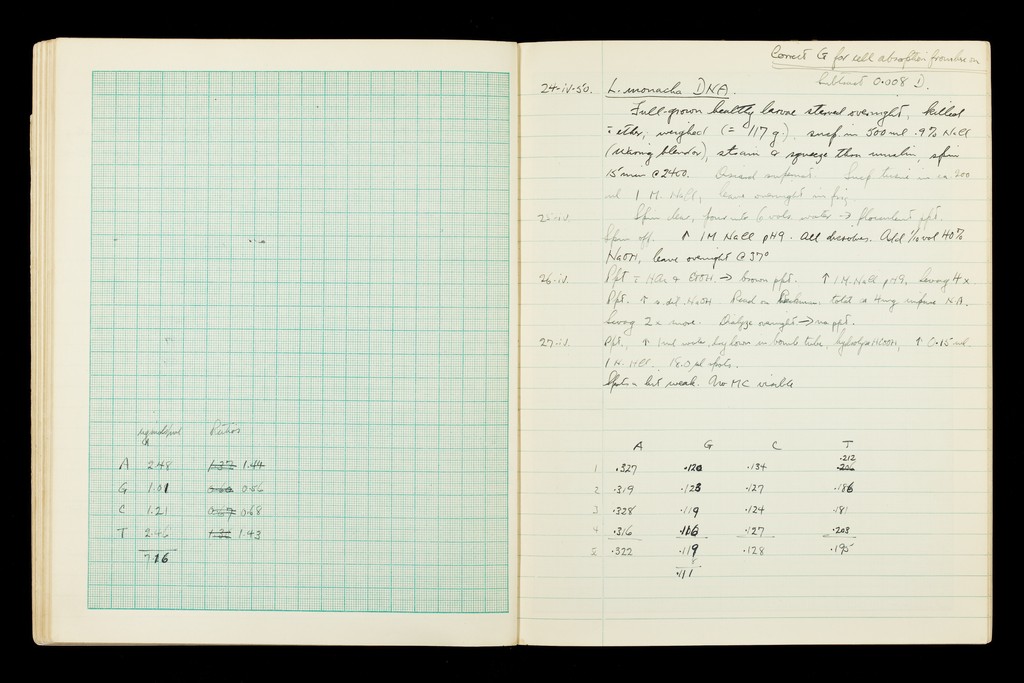 µg moles/ml Ratios
A 2.48 1.37 1.44
G 1.01 0.56
C 1.21 0.68
T 2.46 1.43
7.16
Correct G for cell absorption from here on
Subtract 0.008 D.
24-iv-50. L. monacha DNA.
Full-grown healthy larvae starved overnight, killed
c̄ ether, weighed (= 117 g.), susp. in 500 ml .9% NaCl
(Waring blendor), strain & squeeze thru muslin, spin
15 min @ 2400. Discard supernat. Susp tissue in ca 200
ml 1 M. NaCl, leave overnight in frig.
25-iv. Spin clear, pour into 6 vols. water → flocculent ppt.
Spin off. ↑ 1M NaCl pH9. All dissolves. Add 1/10 vol 40%
NaOH, leave overnight @ 37°
26-iv. Ppt c̄ HCl & EtOH → brown ppt. ↑ 1 M. NaCl pH9, Sevag 4 x
Ppt. ↑ in dil NaOH Read on Beckman, total ca 4 mg impure N.A.
Sevag 2 x more. Dialyze overnight → no ppt.
27-iv. Ppt, ↑ 1 ml water, dry down in bomb tube, hydrolyse HCOOH, ↑ 0.15 ml
1 N. HCl. 18.0 µl spots.
Spots a bit weak. No MC visible
A G C T
.212
1 .327 .120 .134 .206
2 .319 .128 .127 .186
3 .328 .119 .124 .181
4 .316 .116 .127 .203
.322 .119 .128 .195
8
.111